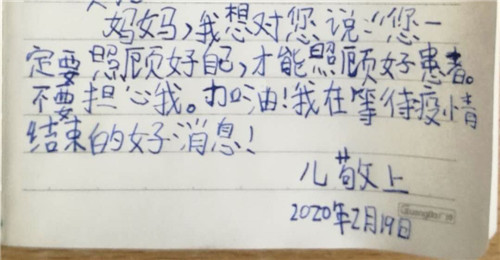 妈妈,我想对您说:“您一
定要照顾好自己,才能照顾好患者。
不要担心我。加油!我在等待疫情
结束的好消息!
儿敬上
2020年2月19日